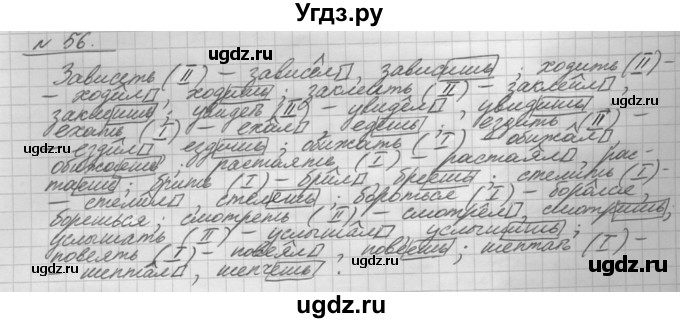 Угдз.ру
№ 56.
ugdz.ru ugdz.ru ugdz.ru
Зависеть (II) – зависел, зависишь; ходить (II) –
– ходил, ходишь; заклеить (II) – заклеил,
заклеишь; увидеть (II) – увидел, увидишь;
ехать (I) – ехал, едешь; ездить (II) –
– ездил, ездишь; обижать (I) – обижал,
обижаешь; растаять (I) – растаял, рас-
таешь; брить (I) – брил, бреешь; стелить (I) –
– стелил, стелешь; бороться (I) – боролся,
борешься; смотреть (II) – смотрел, смотришь;
услышать (II) – услышал, услышишь;
повеять (I) – повеял, повеешь; шептать (I) –
– шептал, шепчешь.
ugdz.ru ugdz.ru ugdz.ru
ugdz.ru